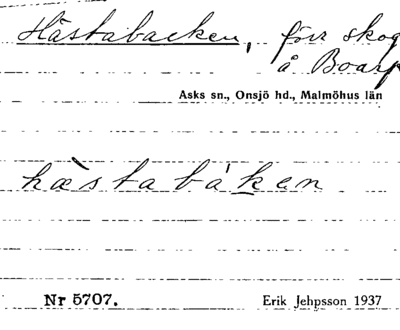 Hästabacken, förr skog
å Boarp
Asks sn., Onsjö hd., Malmöhus län
hæ̀stabáken
Nr 5707.
Erik Jehpsson 1937